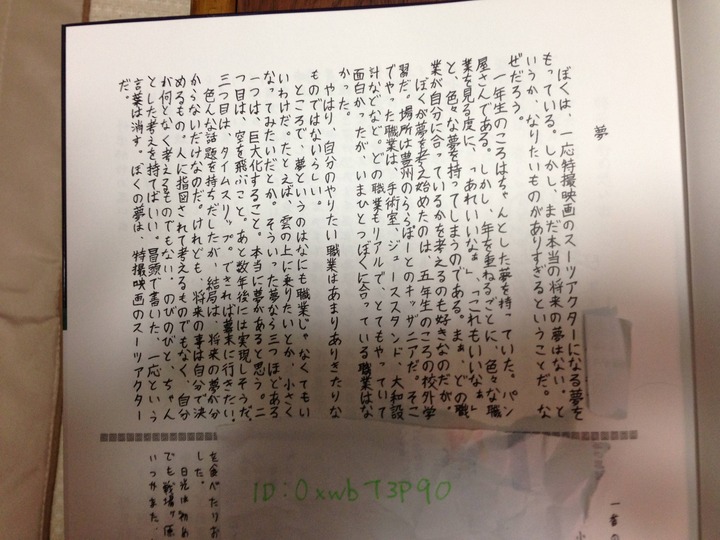 夢
ぼくは、一応特撮映画のスーツアクターになる夢を
もっている。しかし、まだ本当の将来の夢はない。と
いうか、なりたいものがありすぎるということだ。な
ぜだろう。
一年生のころはちゃんとした夢を持っていた。パン
屋さんである。しかし、年を重ねるごとに、色々な職
業を見る度に、「あれいいなぁ」、「これもいいなぁ」
と、色々な夢を持ってしまうのである。まぁ、どの職
業が自分に合っているかを考えるのも好きなのだが。
ぼくが夢を考え始めたのは、五年生のころの校外学
習だ。場所は豊洲のららぽーとのキッザニアだ。そこ
でやった職業は、手術室、ジューススタンド、大和設
計などなど。どの職業もリアルで、とてもやっていて
面白かったが、いまひとつぼくに合っている職業はな
かった。
やはり、自分のやりたい職業はあまりありきたりな
ものではないらしい。
ところで、夢というのはなにも職業じゃなくてもい
いわけだ。たとえば、雲の上に乗りたいとか、小さく
なってみたいだとか。そういった夢なら三つほどある
一つは、巨大化すること。本当に夢があると思う。二
つ目は、空を飛ぶこと。あと数年後には実現しそうだ。
三つ目は、タイムスリップ。できれば幕末に行きたい。
色んな話題を持ちだしたが、結局は、将来の夢が分
からないだけなのだ。けれども、将来の事は自分で決
めるもの。人に指図されて考えるものでもなく、自分
が何となく考えるものでもない。のびのびと、ちゃん
とした考えを持てばいい。冒頭で書いた、一応という
言葉は消す。ぼくの夢は、特撮映画のスーツアクター
だ。
ID:0xwbT3P90
一番の
小
を食べたりお
した。
日光は初め
でも戦場ヶ原